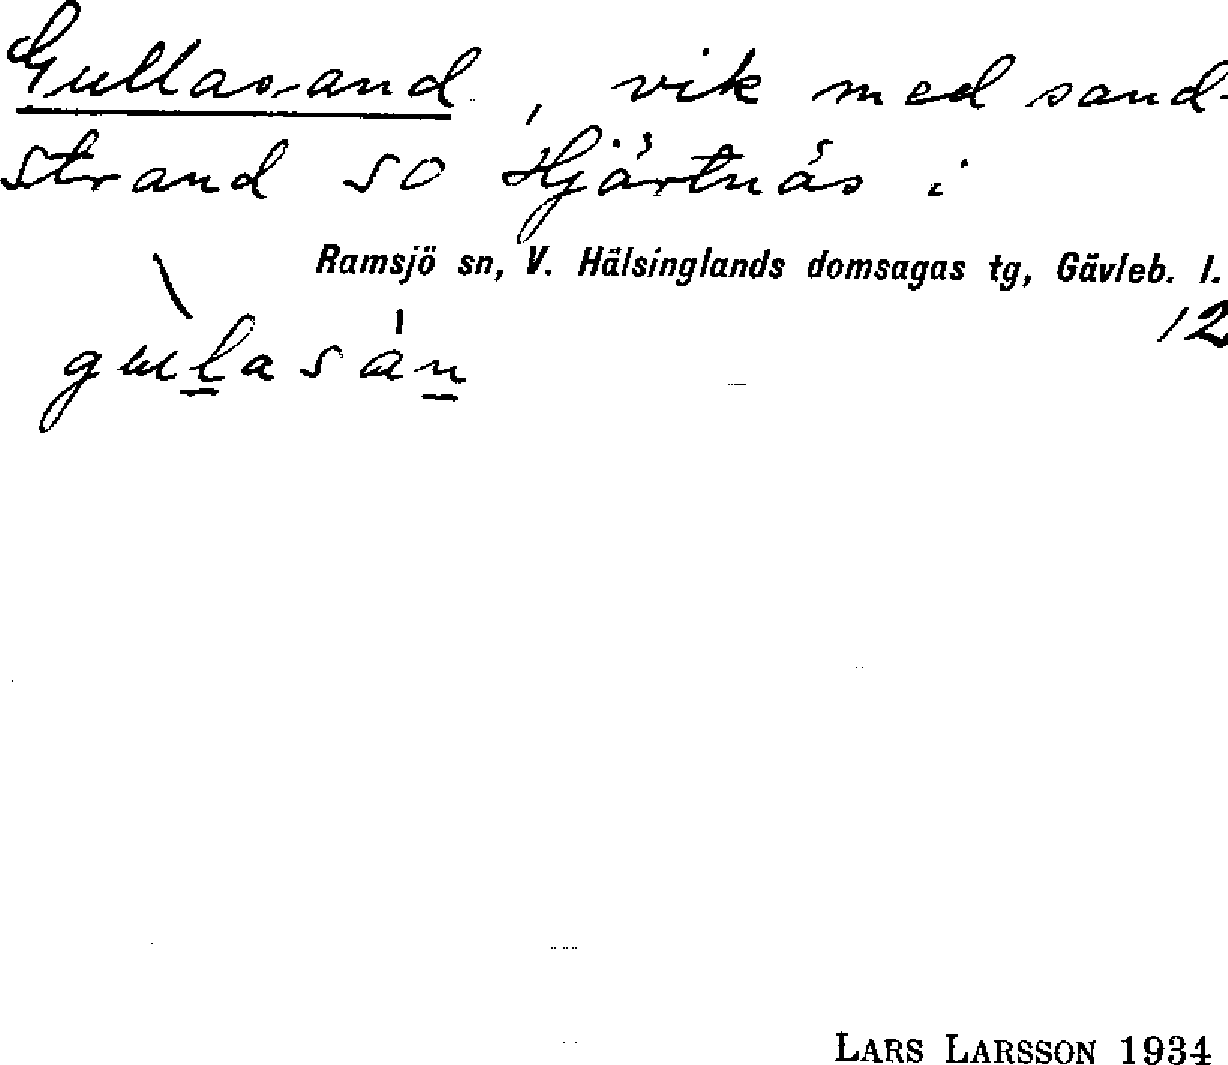 Gullasand, vik med sand-
strand SO Hjärtnäs i
Ramsjö sn, V. Hälsinglands domsagas tg, Gävleb. l.
12
gulasán
LARS LARSSON 1934